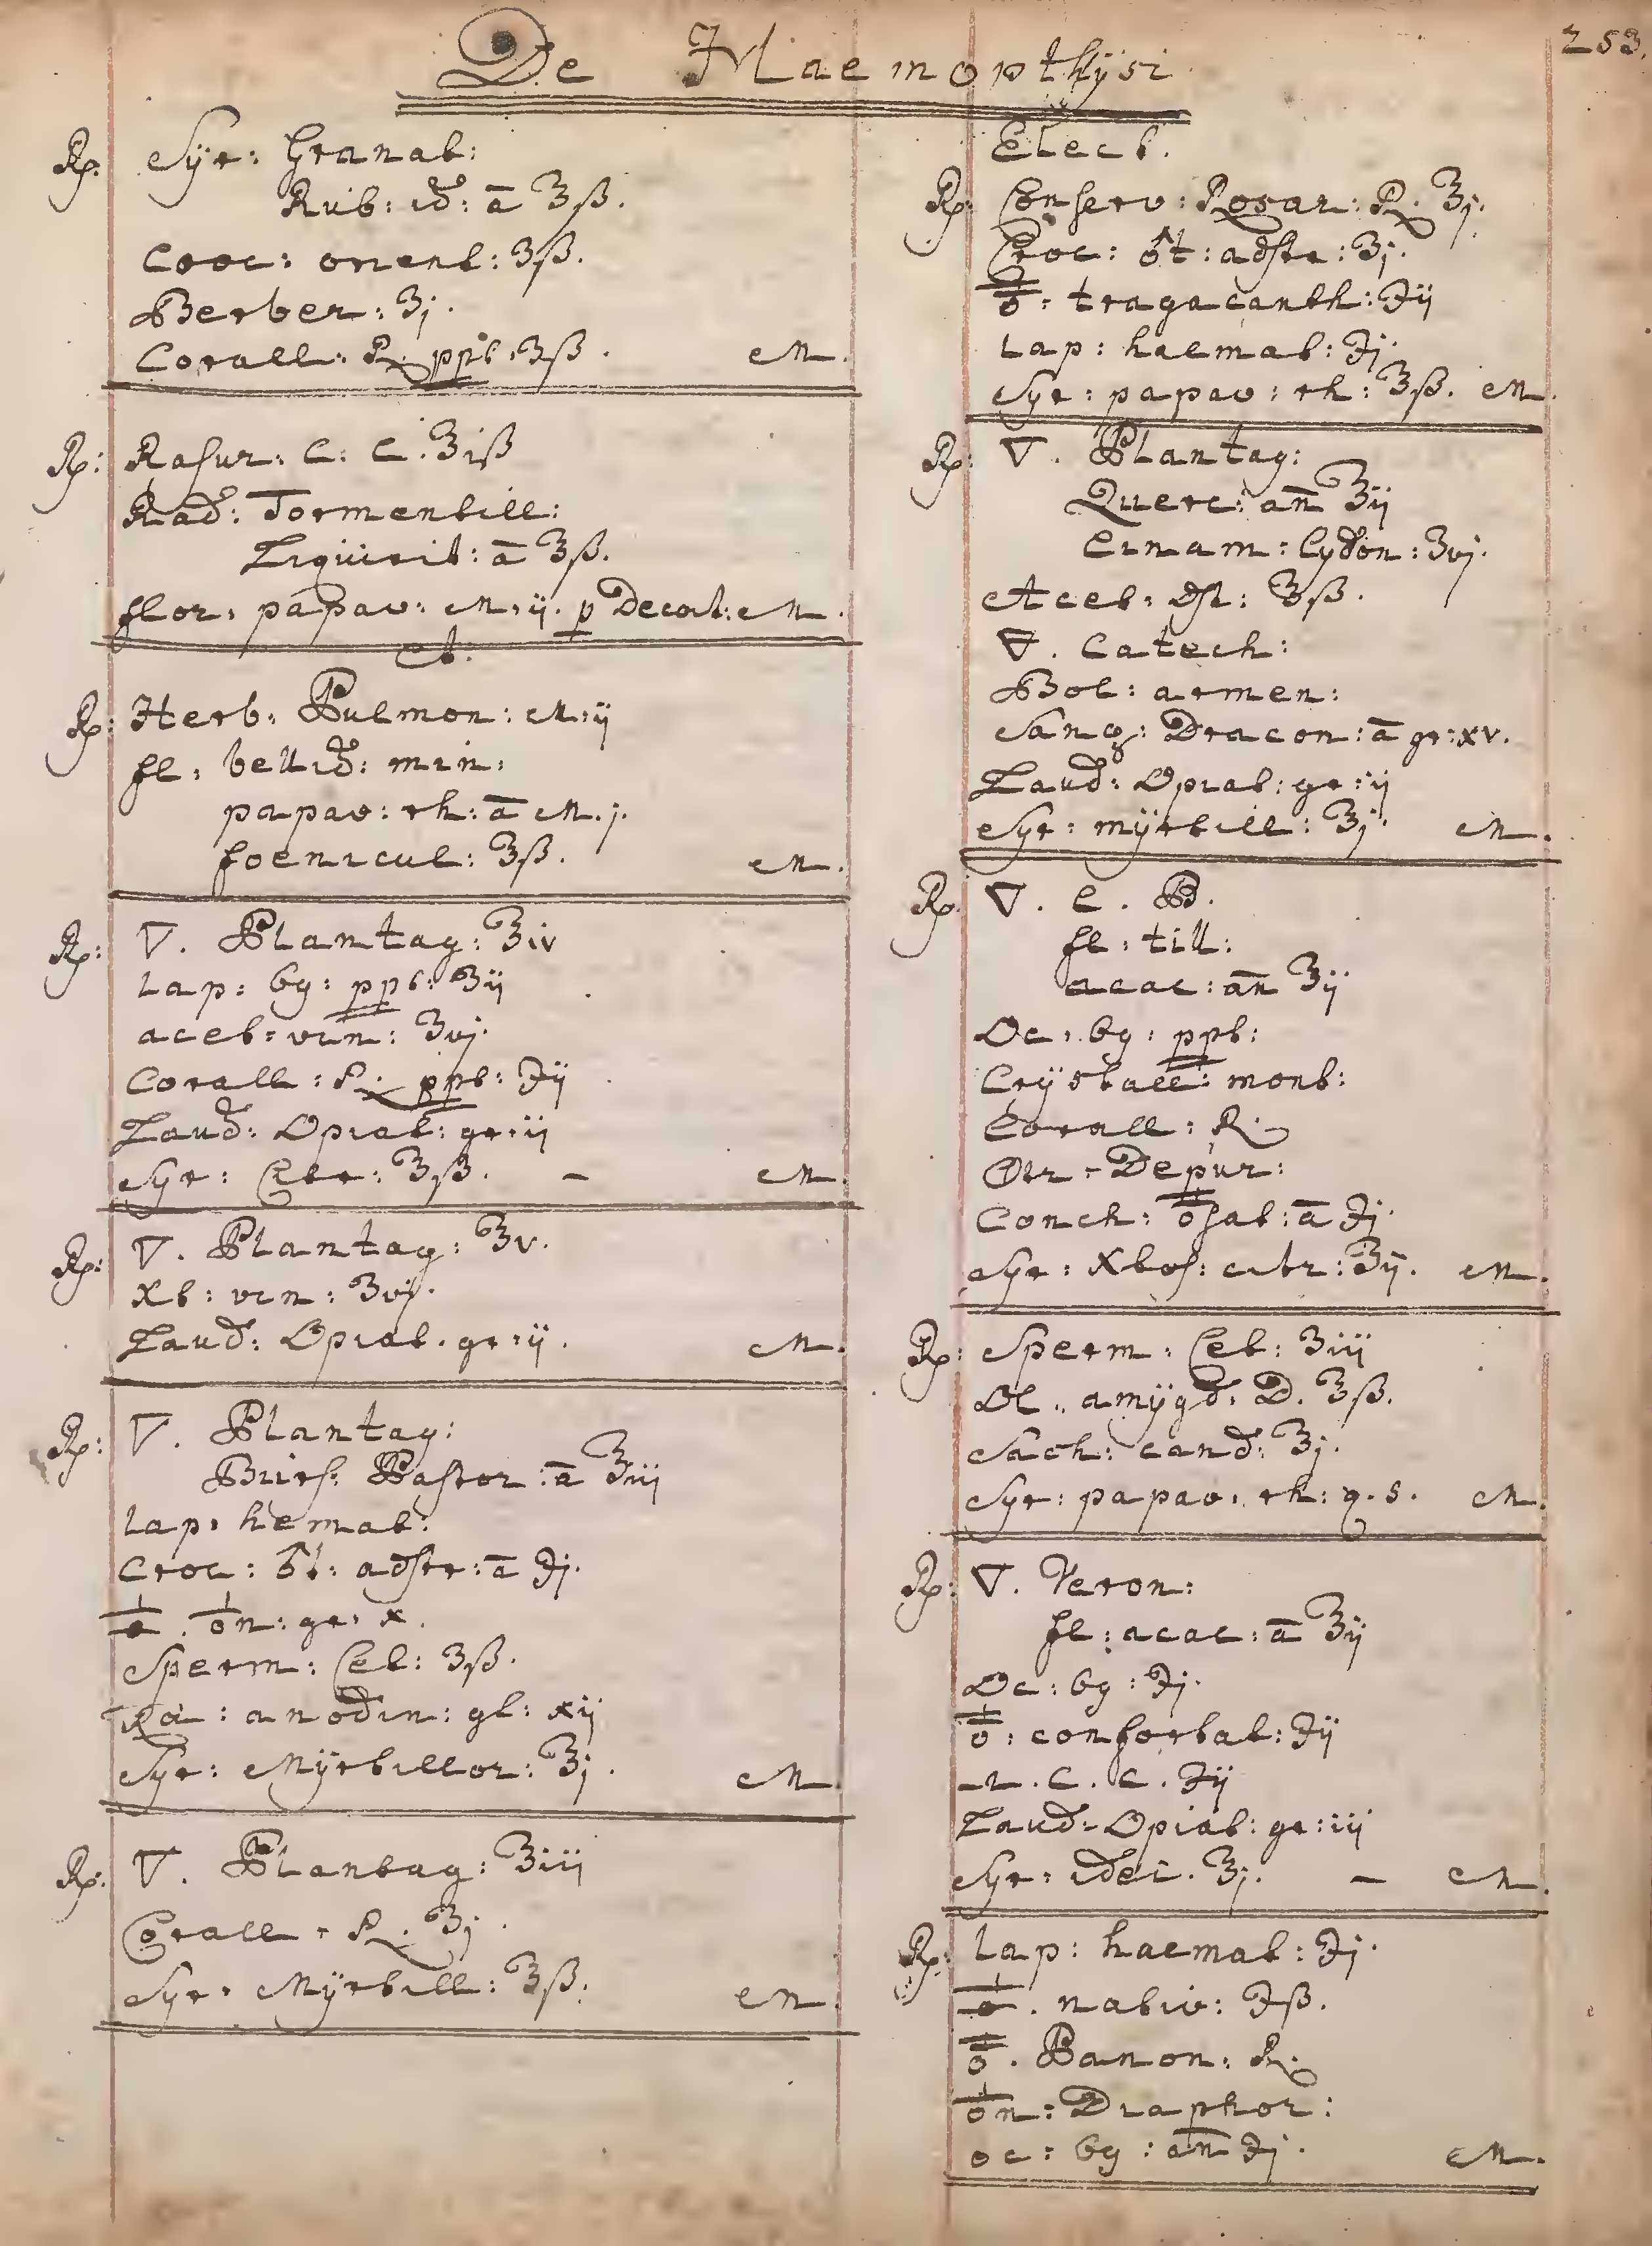 253.
De Haemopthÿsi
Rp. Syr: Granat:
Rub: id: ā ʒß.
Croc: orient: ʒß.
Berber: ʒj.
Corall: R. ppt: ʒß. M.
Rp: Rasur: C. C. ʒiß
Rad: Tormentill:
Liquirit: ā ʒß.
flor: papav: M. ij. p Decoct: M.
et.
Rp: Herb: Pulmon: M. ij
fl: bellid: min:
papav: rh: ā M. j.
foenicul: ʒß. M.
Rp: ▽. Plantag: ʒiv
Lap: 69: ppt: ʒij
acet: vin: ʒvj.
Corall: R. ppt: ℈ij
Laud: Opiat: gr: ij
Syr: Citr: ʒß. – M.
Rp: ▽. Plantag: ʒv.
Xt: vin: ʒvj.
Laud: Opiat. gr: ij. M.
Rp: ▽. Plantag:
Burs: Pastor: ā ʒiij
Lap: hemat:
Croc: ♂t: adstr: ā ℈j.
gr. x.
Sperm: Cet: ʒß.
anodin: gt: xij
Syr: Mÿrtillor: ʒj. M.
Rp: ▽. Plantag: ʒiij
Corall: R. ʒj.
Syr: Mÿrtill: ʒß. M.
Elect.
Rp: Conserv: Rosar: R. ʒj.
Croc: ♂t: adstr: ʒj.
tragacanth: ℈ij
Lap: haemat: ℈j.
Syr: papav: rh: ʒß. M.
Rp: ▽. Plantag:
Querc: an ʒij
Cinam: Cydon: ʒvj.
Acet: dst: ʒß.
▽. Catech:
Bol: armen:
Sang: Dracon: ā gr: xv.
Laud: Opiat: gr: ij
Syr: mÿrtill: ʒj. M.
Rp: ▽. C. B.
fl: till:
acac: an ʒij
Oc: 69: ppt:
Crÿstall: mont:
Corall: R.
Depur:
Conch: ā ℈j.
Syr: Xtos: citr: ʒij. M.
Rp: Sperm: Cet: ʒiij
Ol: amÿgd: D. ʒß.
Sach: cand: ʒj.
Syr: papav: rh: q. s. M.
Rp: ▽. Veron:
fl: acac: ā ʒij
Oc: 69: ℈j.
confortat: ℈ij
C. C. ℈ij
Laud: Opiat: gr: iij
Syr: idei. ʒj. – M.
Rp: Lap: haemat: ℈j.
nativ: ℈ß.
R.
Diaphor:
oc: 69: an ℈j. M.